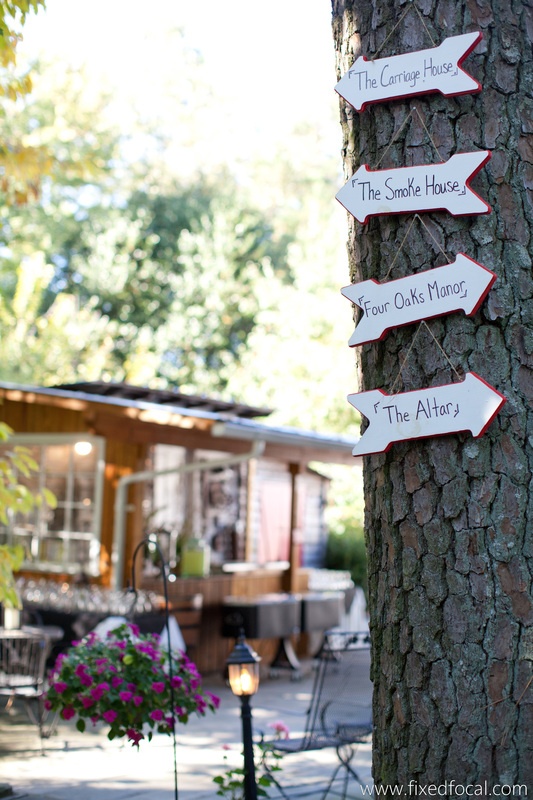 「The Carriage House」
「The Smoke House」
「Four Oaks Manor」
「The Altar」
www.fixedfocal.com